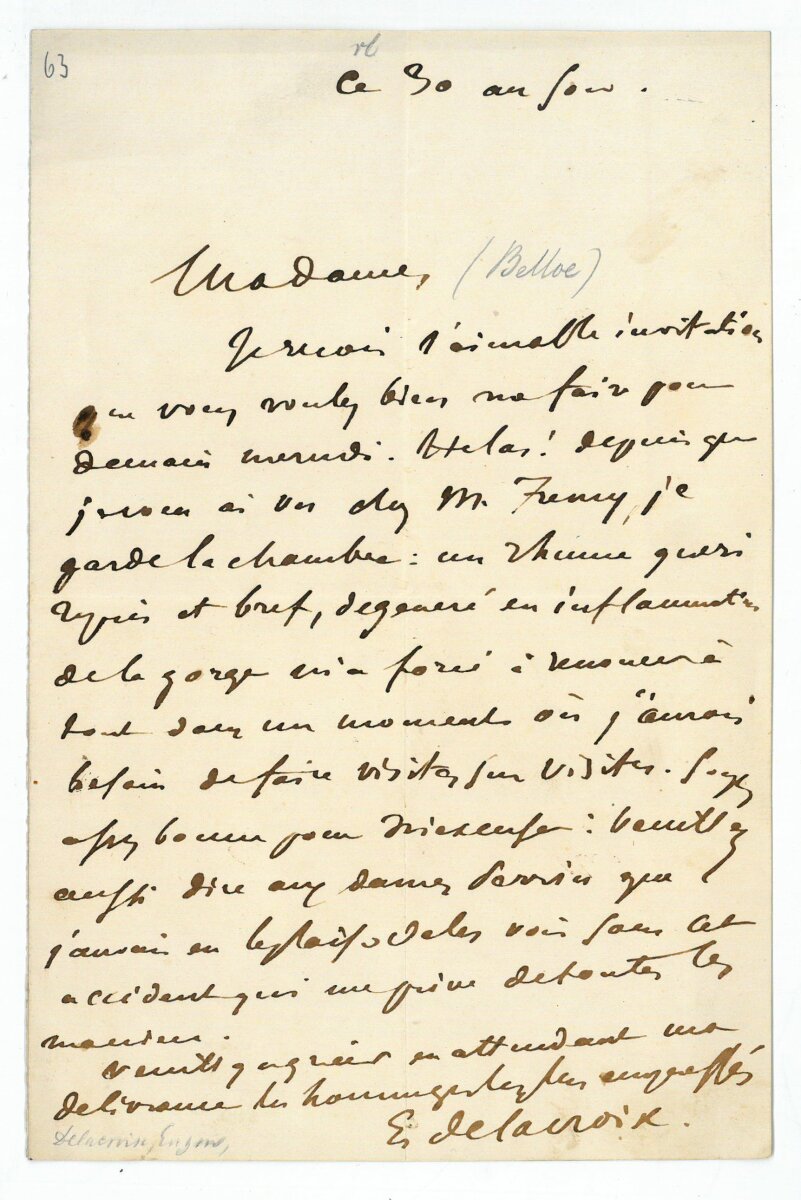 63
Ce 30 au soir.
Madame, (Belloc)
Je reçois l'aimable invitation
que vous voulez bien me faire pour
demain mercredi. Helas! depuis que
je vous ai vu chez M. Fremy, je
garde la chambre: un rhume
et bref, degeneré en inflammation
de la gorge m'a forcé à renoncer à
tout dans un moment où j'aurais
besoin de faire visites sur visites. Soyez
assez bonne pour m'excuser: veuillez
aussi dire aux dames Perrin que
j'aurais eu le plaisir de les voir sans cet
accident qui me prive de toutes les
manieres.
veuillez agréer en attendant ma
delivrance les hommages les plus empressés
E. Delacroix.
Delacroix, Eugene,